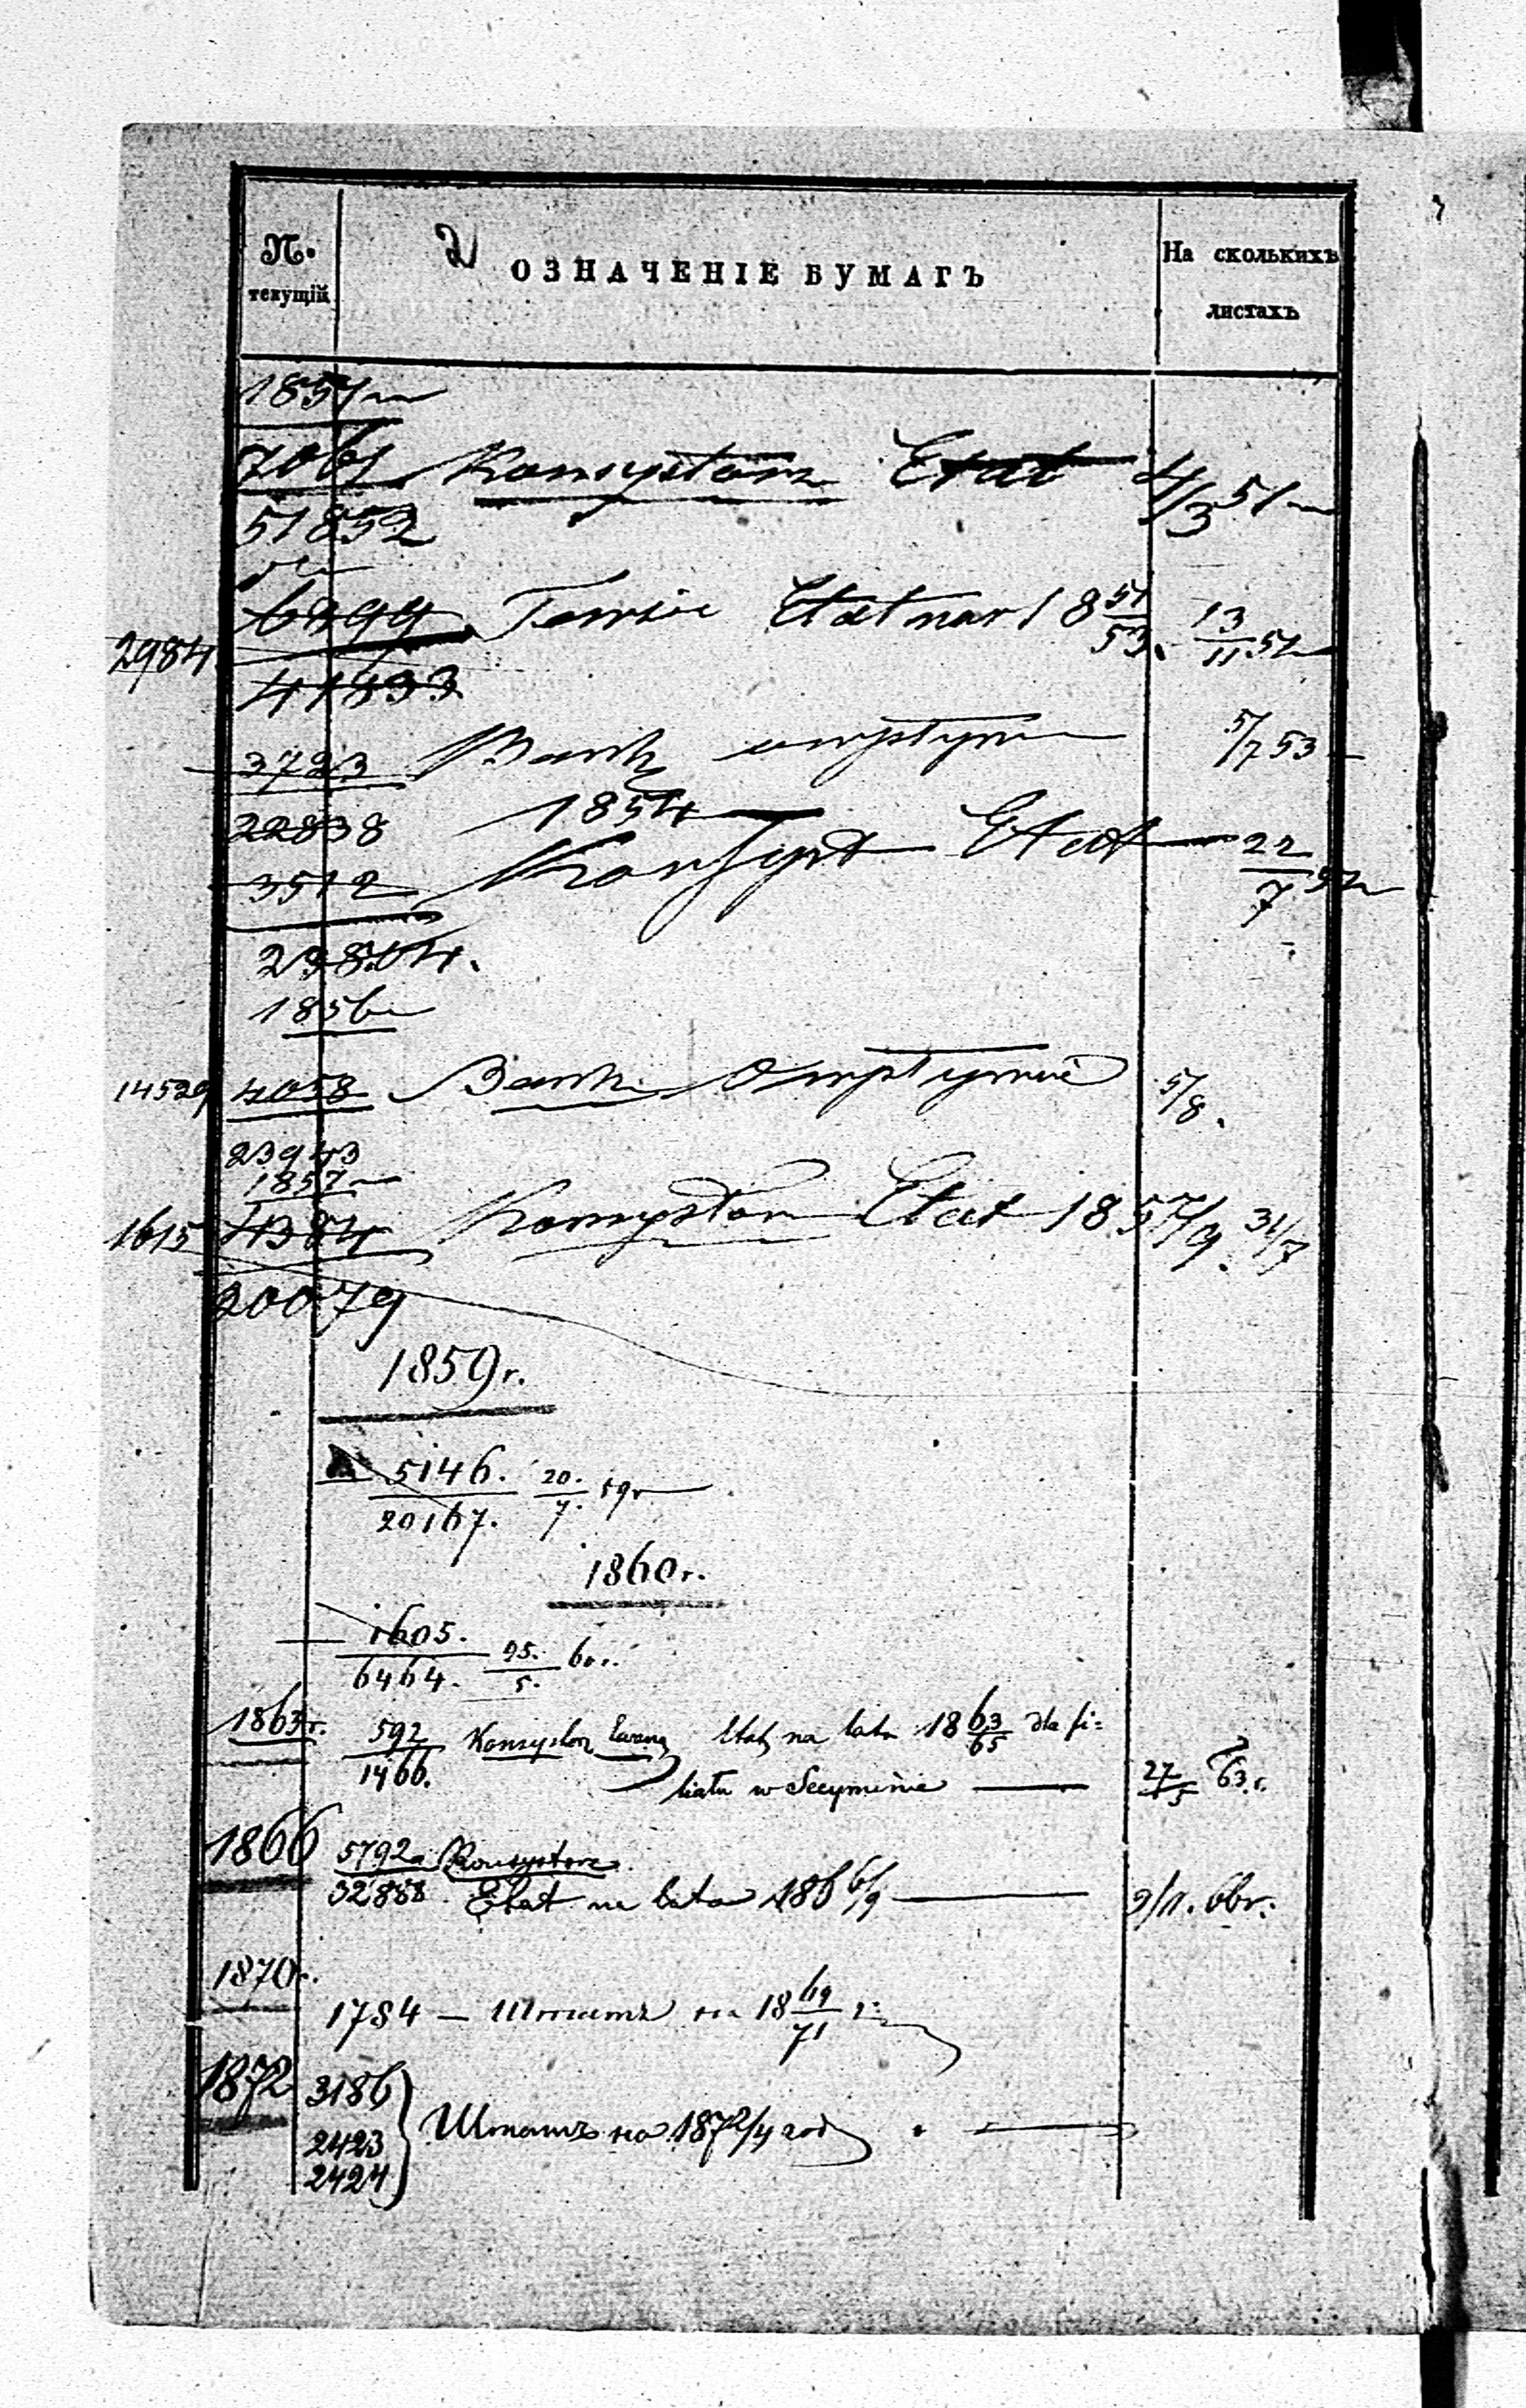 №. ОЗНАЧЕНІЕ БУМАГЪ На сколькихъ
текущій листахъ
1851
7061 Konsystorz Etat 4/3 51
51852
6899 Etat na r 18 51/53. 13/11 52
2984
41833
3723 Bank 5/7 53
22838 1854
3512 Konsyst Etat 22/7 54
29804.
1856
14529 4058 Bank 5/8.
23943
1857
1615 4384 Konsystorz Etat 1857/9. 31/7
20079
1859 r.
5146. 20./7. 59 r
20167.
1860 r.
1605. 25./5. 60 r.
6464.
1863 r. 592 Konsystorz Ewang Etat na lata 18 63/65 dla fi=
1466. liału w Secyminie — 27/5 63 r.
1866 5792 Konsystorz
32888. Etat na lata 186 6/9 — 9/11. 66 r.
1870 r.
1784 — Штатъ на 18 69/71 г.
1872 3186
2423 Штатъ на 1872/4 год
2424